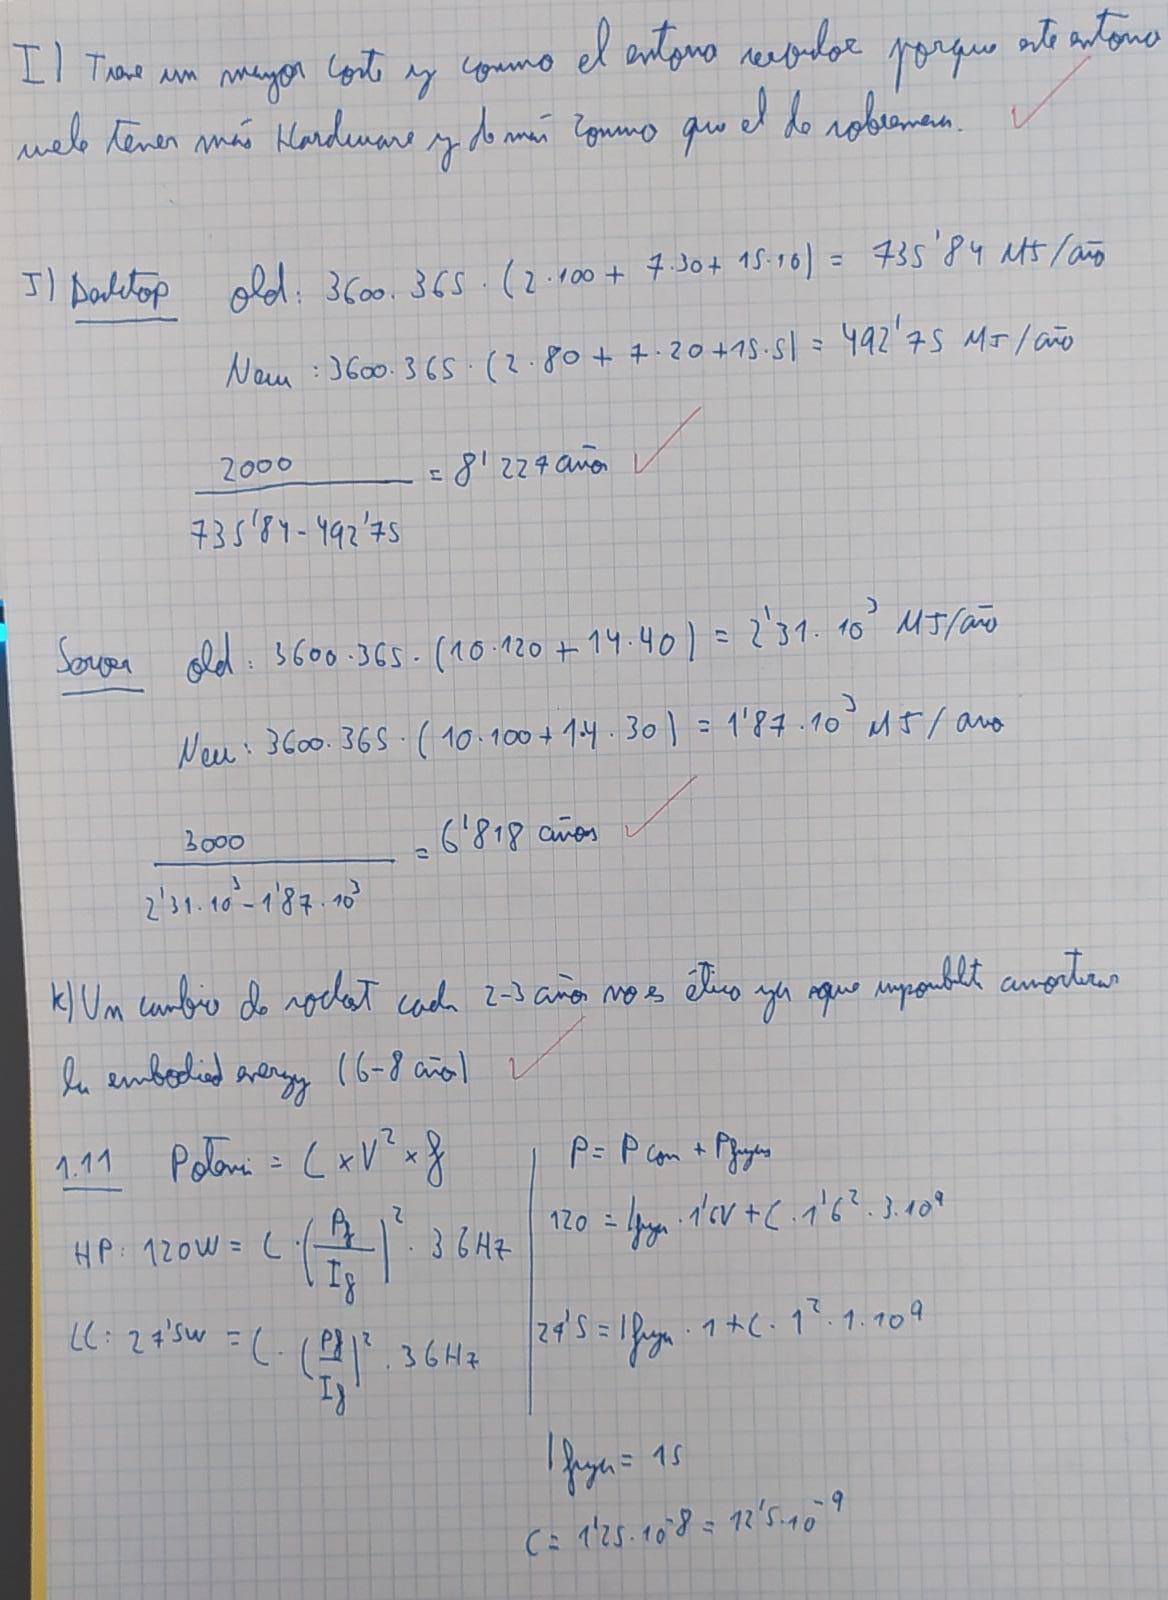 I) Tiene un mayor coste y consumo el entorno servidor porque este entorno
suele tener más Hardware y de más consumo que el de sobremesa.
J) Desktop old: 3600.365.(2.100 + 7.30 + 15.10) = 735'84 MJ/año
New: 3600.365.(2.80 + 7.20 + 15.5) = 492'75 MJ/año
2000 / (735'84 - 492'75) = 8'227 años
Server old: 3600.365.(10.120 + 14.40) = 2'31.10³ MJ/año
New: 3600.365.(10.100 + 14.30) = 1'87.10³ MJ/ano
3000 / (2'31.10³ - 1'87.10³) = 6'818 años
K) Un cambio de cada 2-3 años no es ético ya que amortizar
la embodied energy (6-8 año)
1.11 Potenci = C x V² x f
HP: 120W = C . (Pf / If)² . 3 GHz
LC: 27'5W = C . (Pf / If)² . 3 GHz
P = P con + P fugas
120 = I fuga . 1'6V + C . 1'6² . 3.10⁹
27'5 = I fuga . 1 + C . 1² . 1.10⁹
I fuga = 15
C = 1'25.10⁻⁸ = 12'5.10⁻⁹